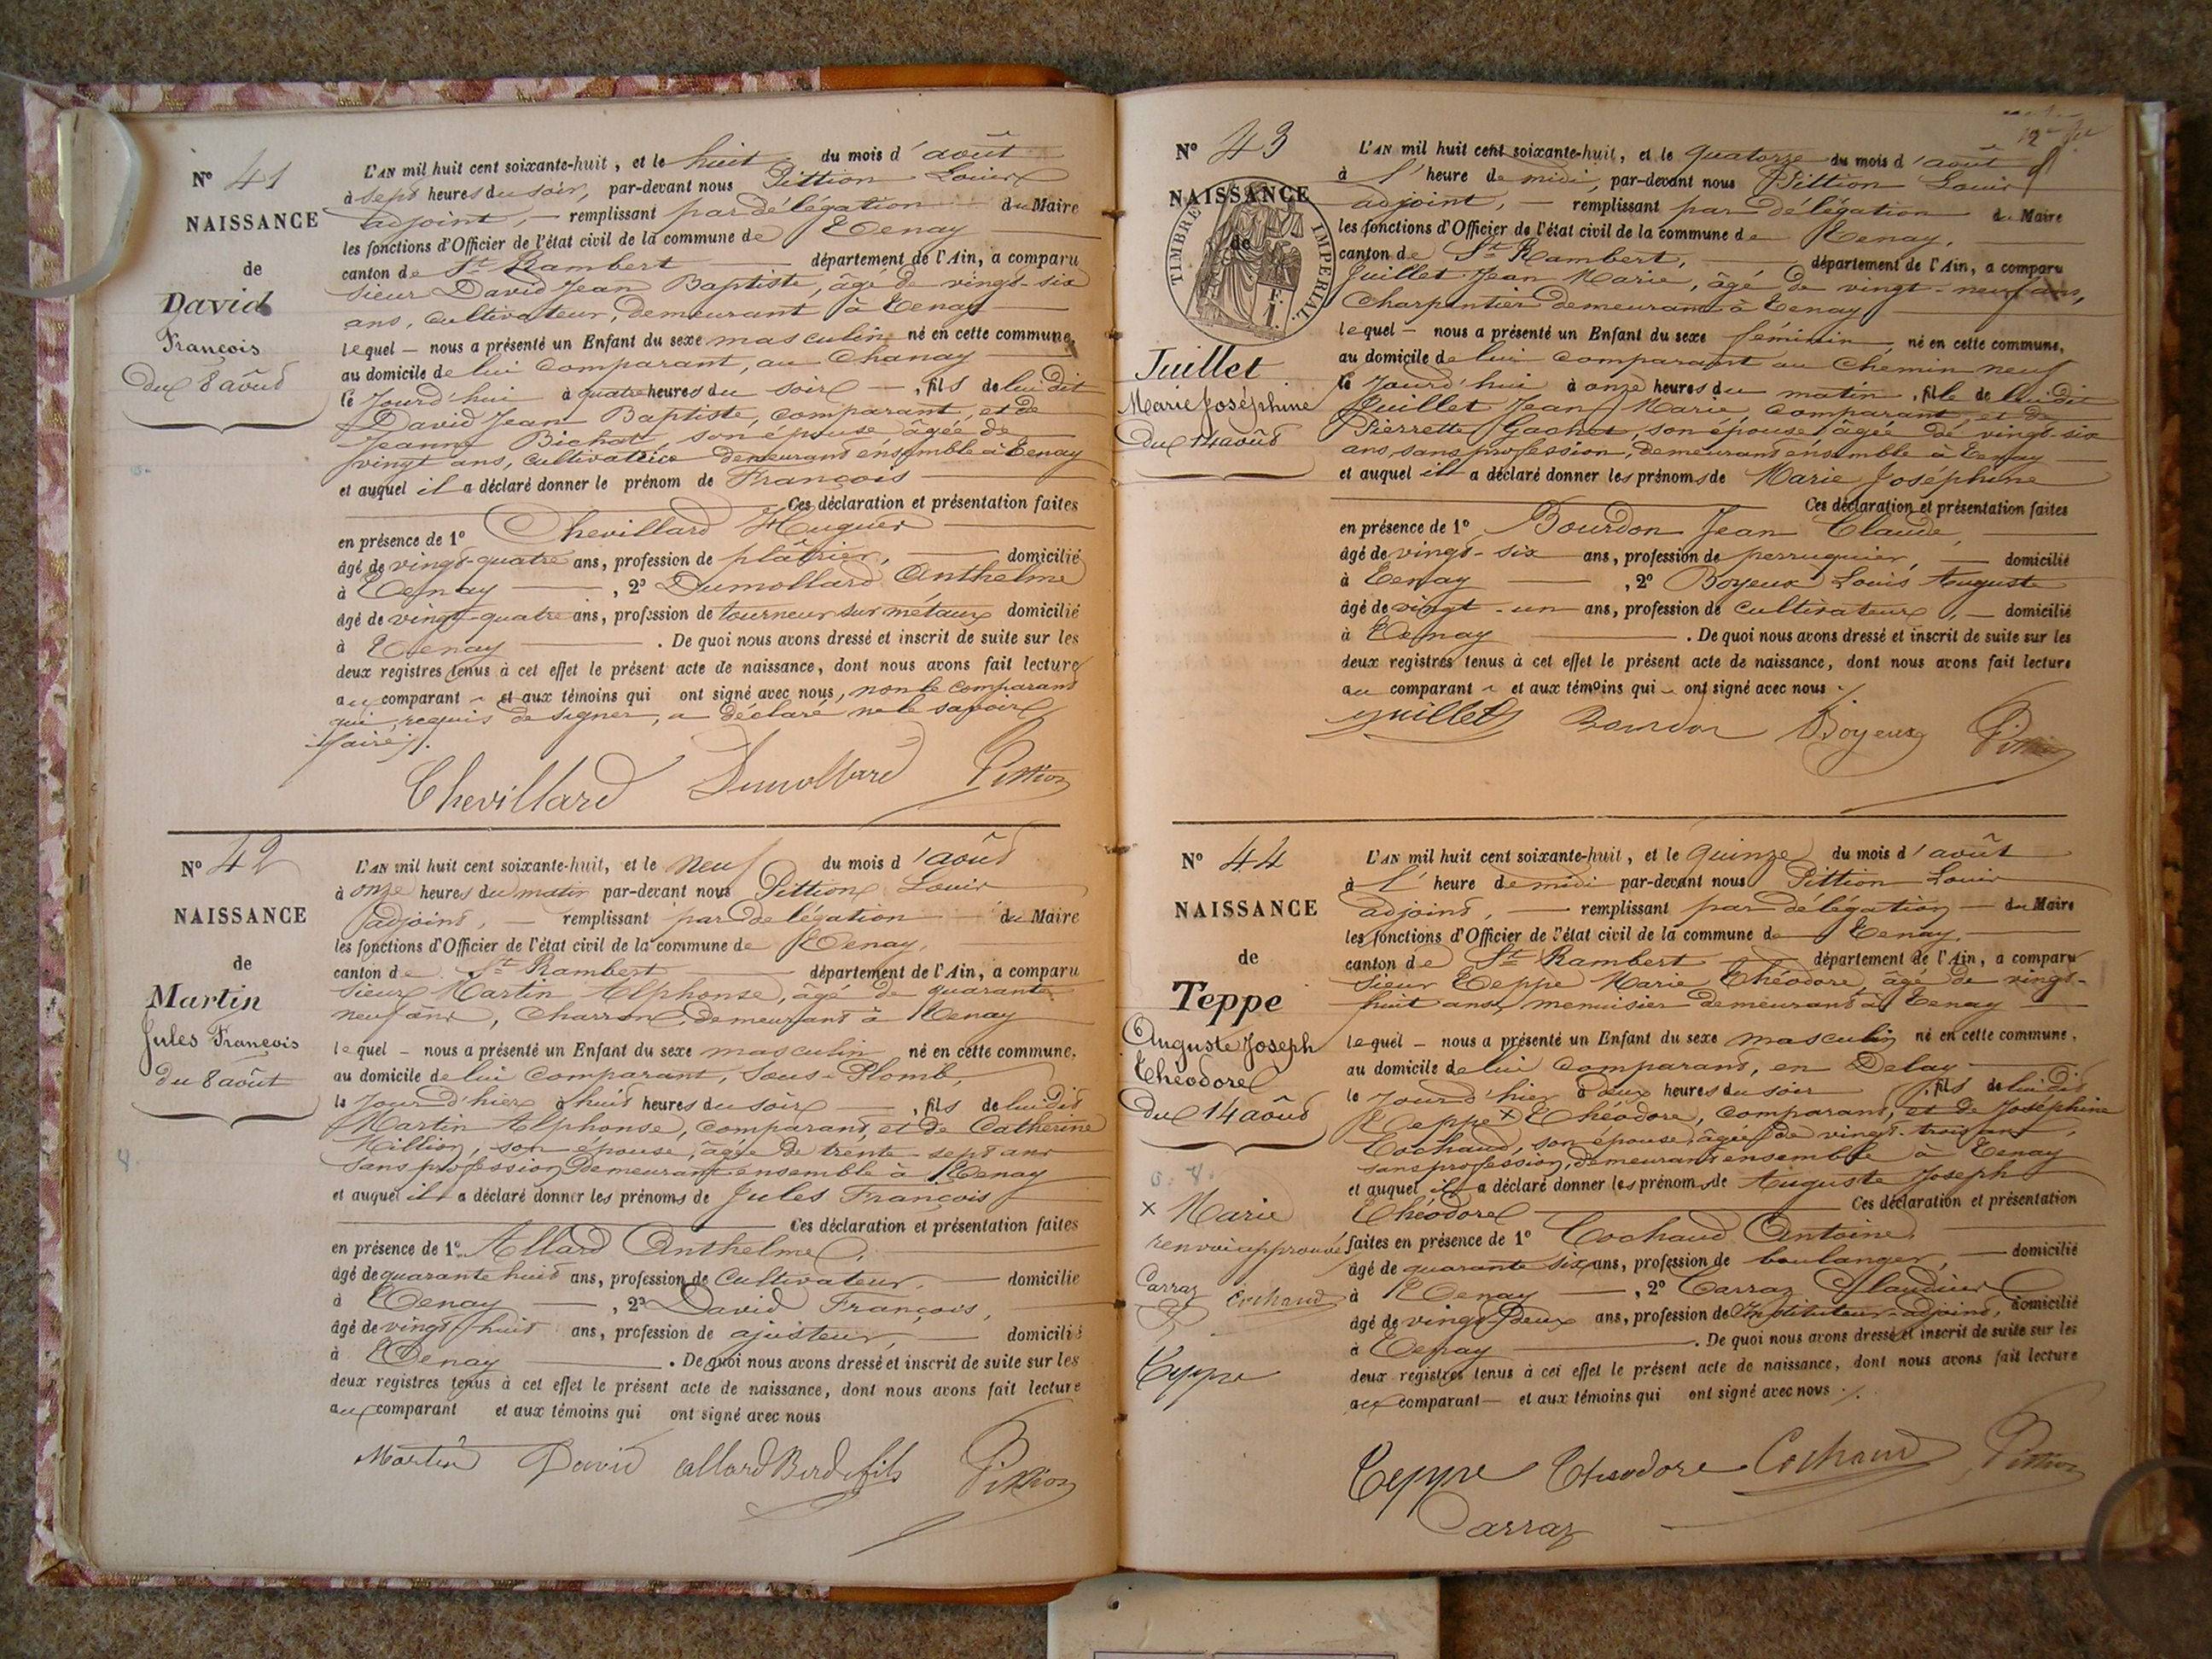 N° 41
NAISSANCE
de
David
François
du 8 août
L'AN mil huit cent soixante-huit, et le huit du mois d'août
à sept heures du soir, par-devant nous Pittion Louis
adjoint, — remplissant par délégation du Maire
les fonctions d'Officier de l'état civil de la commune de Tenay
canton de St Rambert département de l'Ain, a comparu
sieur David Jean Baptiste, âgé de vingt-six
ans, cultivateur, demeurant à Tenay
lequel — nous a présenté un Enfant du sexe masculin né en cette commune,
au domicile de lui comparant, au Chanay
le jourd'hui à quatre heures du soir —, fils de lui dit
David Jean Baptiste, comparant, et de
Jeanne Bichat, son épouse âgée de
vingt ans, cultivatrice demeurant ensemble à Tenay
et auquel il a déclaré donner le prénom de François
Ces déclaration et présentation faites
en présence de 1° Chevillard Hugues
âgé de vingt-quatre ans, profession de plâtrier, domicilié
à Tenay, 2° Dumollard Anthelme
âgé de vingt-quatre ans, profession de tourneur sur métaux domicilié
à Tenay. De quoi nous avons dressé et inscrit de suite sur les
deux registres tenus à cet effet le présent acte de naissance, dont nous avons fait lecture
au comparant et aux témoins qui ont signé avec nous, non le comparant
qui, requis de signer, a déclaré ne le savoir
faire.
Chevillard Dumollard Pittion
N° 42
NAISSANCE
de
Martin
Jules François
du 8 août
L'AN mil huit cent soixante-huit, et le neuf du mois d'août
à onze heures du matin par-devant nous Pittion Louis
adjoint, — remplissant par délégation du Maire
les fonctions d'Officier de l'état civil de la commune de Tenay,
canton de St Rambert département de l'Ain, a comparu
sieur Martin Alphonse, âgé de quarante
neuf ans, charron, demeurant à Tenay
lequel — nous a présenté un Enfant du sexe masculin né en cette commune,
au domicile de lui comparant, Sous-Plomb,
le jour d'hier à huit heures du soir —, fils de lui dit
Martin Alphonse, comparant, et de Catherine
Million, son épouse, âgée de trente-sept ans
sans profession, demeurant ensemble à Tenay
et auquel il a déclaré donner les prénoms de Jules François
Ces déclaration et présentation faites
en présence de 1° Allard Anthelme,
âgé de quarante huit ans, profession de cultivateur, domicilié
à Tenay, 2° David François,
âgé de vingt-huit ans, profession de ajusteur domicilié
à Tenay. De quoi nous avons dressé et inscrit de suite sur les
deux registres tenus à cet effet le présent acte de naissance, dont nous avons fait lecture
au comparant et aux témoins qui ont signé avec nous
Martin David allard fils Pittion
N° 43
NAISSANCE
de
TIMBRE IMPERIAL
Juillet
Marie Joséphine
du 14 août
L'AN mil huit cent soixante-huit, et le quatorze du mois d'août
à l'heure de midi, par-devant nous Pittion Louis
adjoint, — remplissant par délégation du Maire
les fonctions d'Officier de l'état civil de la commune de Tenay,
canton de St Rambert, département de l'Ain, a comparu
Juillet Jean Marie, âgé de vingt-neuf ans,
charpentier demeurant à Tenay
lequel — nous a présenté un Enfant du sexe féminin, né en cette commune,
au domicile de lui comparant au Chemin neuf
le jourd'hui à onze heures du matin, fille de lui dit
Juillet Jean Marie, comparant, et de
Pierrette Gachet, son épouse, âgée de vingt-six
ans, sans profession, demeurant ensemble à Tenay
et auquel il a déclaré donner les prénoms de Marie Joséphine
Ces déclaration et présentation faites
en présence de 1° Bourdon Jean Claude,
âgé de vingt-six ans, profession de perruquier, domicilié
à Tenay, 2° Boyeux Louis Auguste
âgé de vingt-un ans, profession de cultivateur, — domicilié
à Tenay. De quoi nous avons dressé et inscrit de suite sur les
deux registres tenus à cet effet le présent acte de naissance, dont nous avons fait lecture
au comparant et aux témoins qui ont signé avec nous.
Juillet Bourdon Boyeux Pittion
N° 44
NAISSANCE
de
Teppe
Auguste Joseph
Théodore
du 14 août
x Marie
renvoi approuvé
Carraz Cochaud
Teppe
L'AN mil huit cent soixante-huit, et le quinze du mois d'août
à l'heure de midi par-devant nous Pittion Louis
adjoint, — remplissant par délégation — du Maire
les fonctions d'Officier de l'état civil de la commune de Tenay,
canton de St Rambert département de l'Ain, a comparu
sieur Teppe Marie Théodore, âgé de vingt-
huit ans, menuisier demeurant à Tenay
lequel — nous a présenté un Enfant du sexe masculin né en cette commune,
au domicile de lui comparant, en Delay
le jour d'hier à deux heures du soir, fils de lui dit
Teppe x Théodore, comparant, et de Joséphine
Cochaud, son épouse, âgée de vingt-trois ans,
sans profession, demeurant ensemble à Tenay
et auquel il a déclaré donner les prénoms de Auguste Joseph
Théodore Ces déclaration et présentation
faites en présence de 1° Cochaud Antoine,
âgé de quarante six ans, profession de boulanger, — domicilié
à Tenay, 2° Carraz Claudius
âgé de vingt-deux ans, profession de Instituteur adjoint, domicilié
à Tenay. De quoi nous avons dressé et inscrit de suite sur les
deux registres tenus à cet effet le présent acte de naissance, dont nous avons fait lecture
au comparant — et aux témoins qui ont signé avec nous.
Teppe Théodore Cochaud Pittion
Carraz